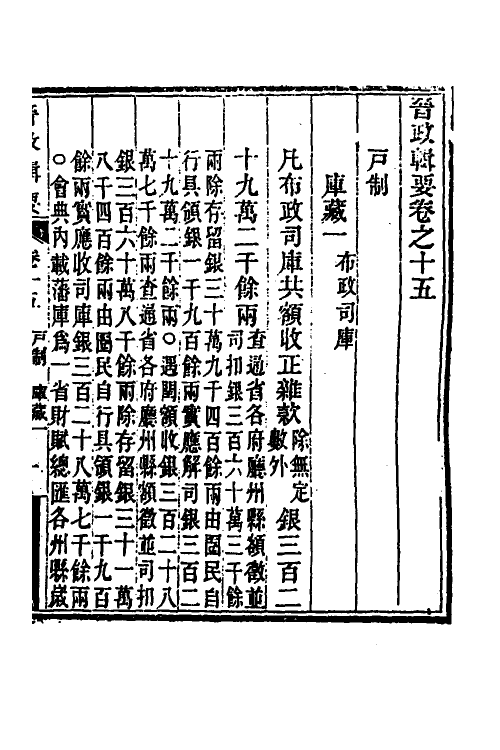 晉政輯要卷之十五
戸制
庫藏一 布政司庫
凡布政司庫共額收正雜款除無定數外銀三百二
十九萬二千餘兩查通省各府廳州縣額徵並
司扣銀三百六十萬三千餘
兩除存留銀三十萬九千四百餘兩由圖民自
行具領銀一千九百餘兩實應解司銀三百二
十九萬二千餘兩○遇閏額收銀三百二十八
萬七千餘兩查通省各府廳州縣額徵並司扣
銀三百六十萬八千餘兩除存留銀三十一萬
八千四百餘兩由圖民自行具領銀一千九百
餘兩實應收司庫銀三百二十八萬七千餘兩
○會典內載藩庫爲一省財賦總匯各州縣歲
晉政輯要 卷十五 戸制 庫藏一 一